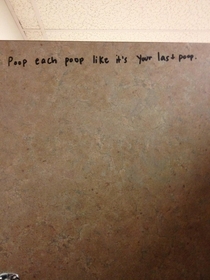 Poop each poop like it's your last poop.